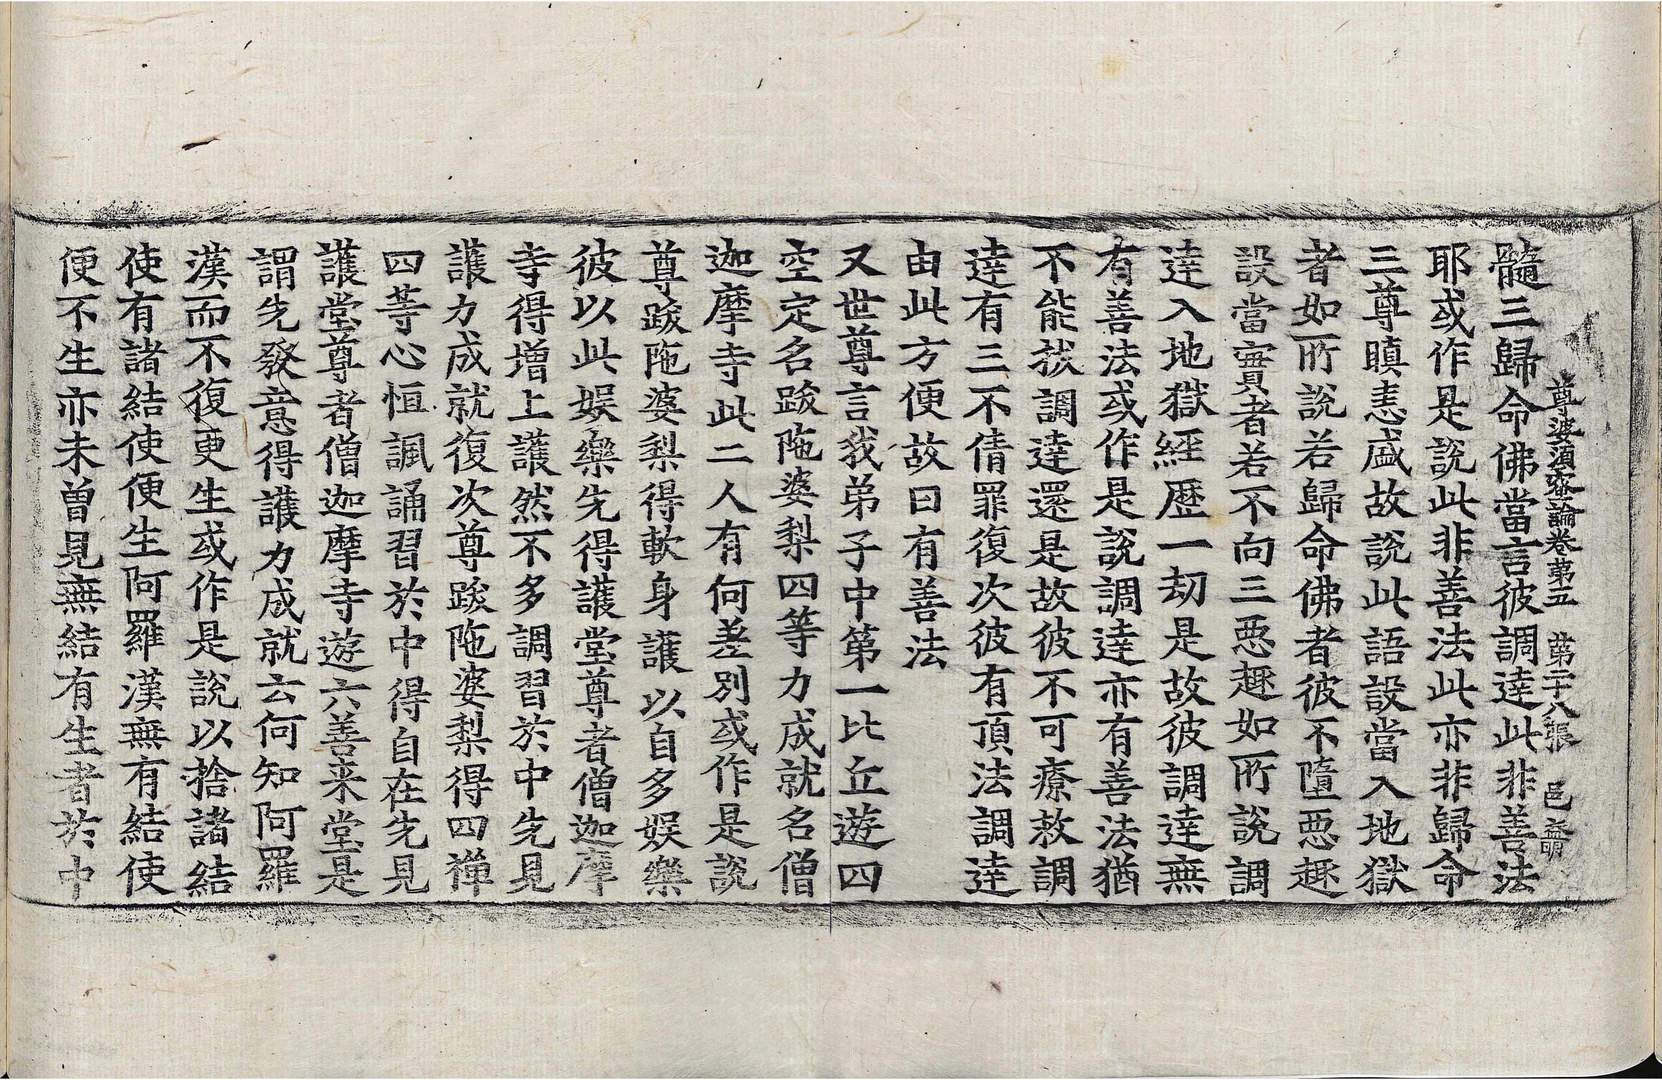 尊婆須蜜論卷第五 第二十八張 邑
髓三歸命佛當言彼調達此非善法
耶或作是說此非善法此亦非歸命
三尊瞋恚盛故說此語設當入地獄
者如所說若歸命佛者彼不墮惡趣
設當實者若不向三惡趣如所說調
達入地獄經歷一劫是故彼調達無
有善法或作是說調達亦有善法猶
不能拔調達還是故彼不可療救調
達有三不倩罪復次彼有頂法調達
由此方便故曰有善法
又世尊言我弟子中第一比丘遊四
空定名跋陁婆梨四等力成就名僧
迦摩寺此二人有何差別或作是說
尊跋陁婆梨得軟身護以自多娛樂
彼以此娛樂先得護堂尊者僧迦摩
寺得增上護然不多調習於中先見
護力成就復次尊跋陁婆梨得四禪
四等心恒諷誦習於中得自在先見
護堂尊者僧迦摩寺遊六善来堂是
謂先發意得護力成就云何知阿羅
漢而不復更生或作是說以捨諸結
使有諸結使便生阿羅漢無有結使
便不生亦未曾見無結有生者於中